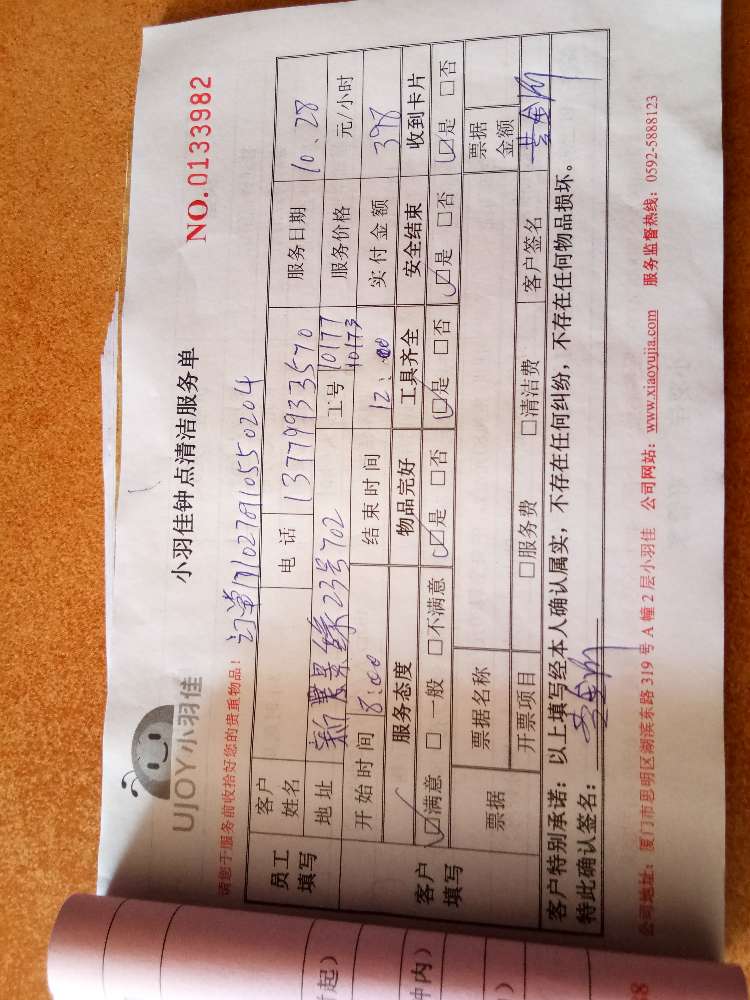 UJOY小羽佳
小羽佳钟点清洁服务单
NO.0133982
请您于服务前收拾好您的贵重物品!
订单17102791055 0204
员工填写
客户姓名
电话 13779933570
服务日期 10.28
地址 新景缘23号702
工号 10177 10173
服务价格 元/小时
开始时间 8:00
结束时间 12:00
实付金额 398
客户填写
服务态度 物品完好 工具齐全 安全结束 收到卡片
☑满意 □一般 □不满意 ☑是 □否 ☑是 □否 ☑是 □否 ☑是 □否
票据
票据名称
票据金额
开票项目 □服务费 □清洁费 客户签名
客户特别承诺:以上填写经本人确认属实,不存在任何纠纷,不存在任何物品损坏。
特此确认签名:
公司地址:厦门市思明区湖滨东路319号A幢2层小羽佳 公司网站:www.xiaoyujia.com 服务监督热线:0592-5888123
起)
钟内)
8